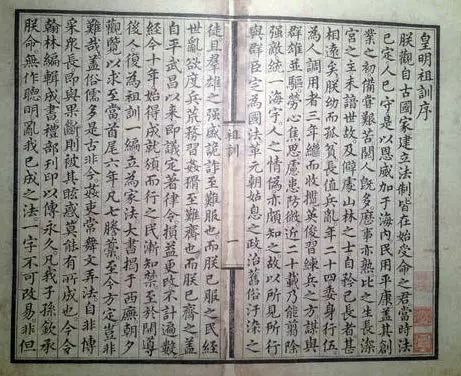 皇明祖訓序
朕觀自古國家建立法制皆在始受命之君當時法
已定人已守是以恩威加於海內民用平康蓋其創
業之初備嘗艱苦閱人既多歷事亦熟比之生長深
宮之主未諳世故及僻處山林之士自矜己長者甚
相遠矣朕幼而孤貧長值兵亂年二十四委身行伍
為人調用者三年繼而收攬英俊習練兵之方謀與
群雄並驅勞心焦思慮患防微近二十載乃能翦除
強敵統一海宇人之情偽亦頗知之故以所見所行
與群臣定為國法革元朝姑息之政治舊俗汙染之
祖訓
一
徒且羣雄之强盛詭詐至難服也而朕已服之民經
世亂欲度兵荒務習奸猾至難齊也而朕已齊之蓋
自平武昌以來即議定著律令損益更改不計遍數
經今十年始得成就頒而行之民漸知禁至於開導
後人復為祖訓一編立為家法大書揭于西廡朝夕
觀覽以求至當首尾六年凡七謄藁至今方定豈非
難哉蓋俗儒多是古非今姦吏常舞文弄法自非博
采衆長即與果斷則被其眩惑莫能有所成也今令
翰林編輯成書禮部刊印以傳永久凡我子孫欽承
朕命無作聰明亂我已成之法一字不可改易非但